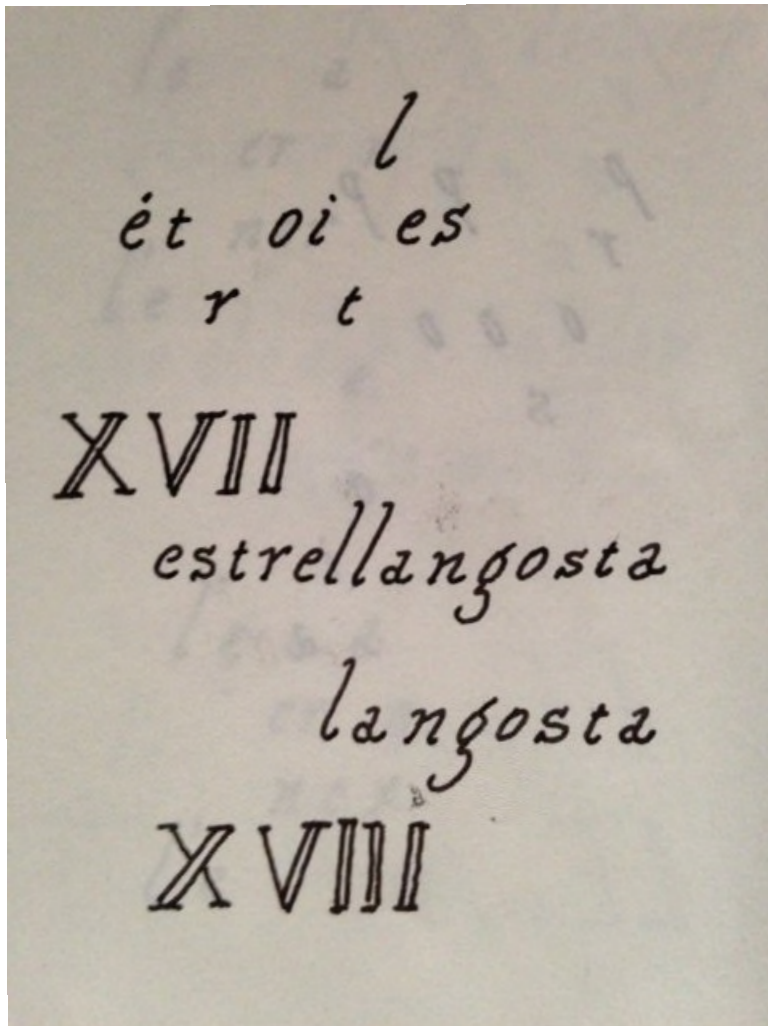 l
ét oi es
r t
XVII
estrellangosta
langosta
XVIII